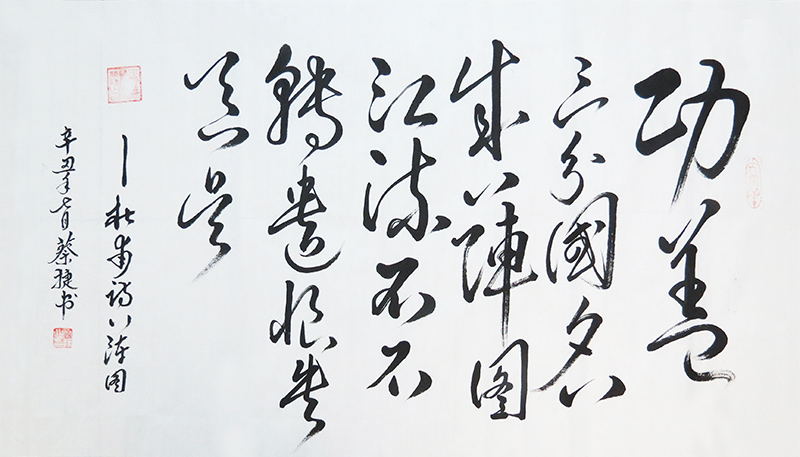 功盖
三分國名
成八陣图
江流石不
轉遗恨失
吞吴
—杜甫诗八阵图
辛丑年七月蔡捷书